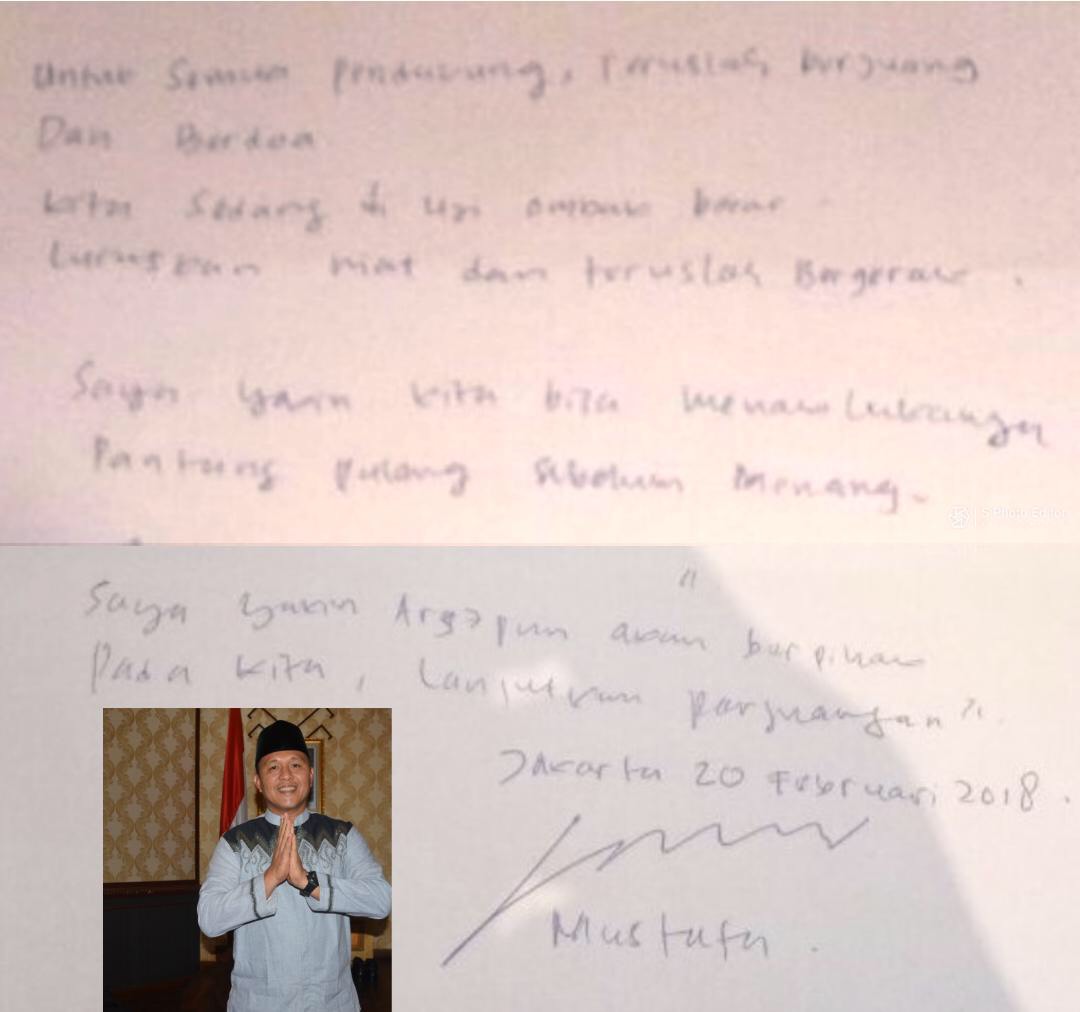 Untuk Semua Pendukung, Teruslah berjuang
Dan Berdoa
Kita Sedang di Uji ombak besar
Luruskan niat dan teruslah Bergerak.
Saya yakin kita bisa menang
Pantang pulang sebelum Menang.
S Photo Editor
"
Saya yakin akan berpihak
Pada kita, Lanjutkan perjuangan".
Jakarta 20 Februari 2018.
Mustafa.